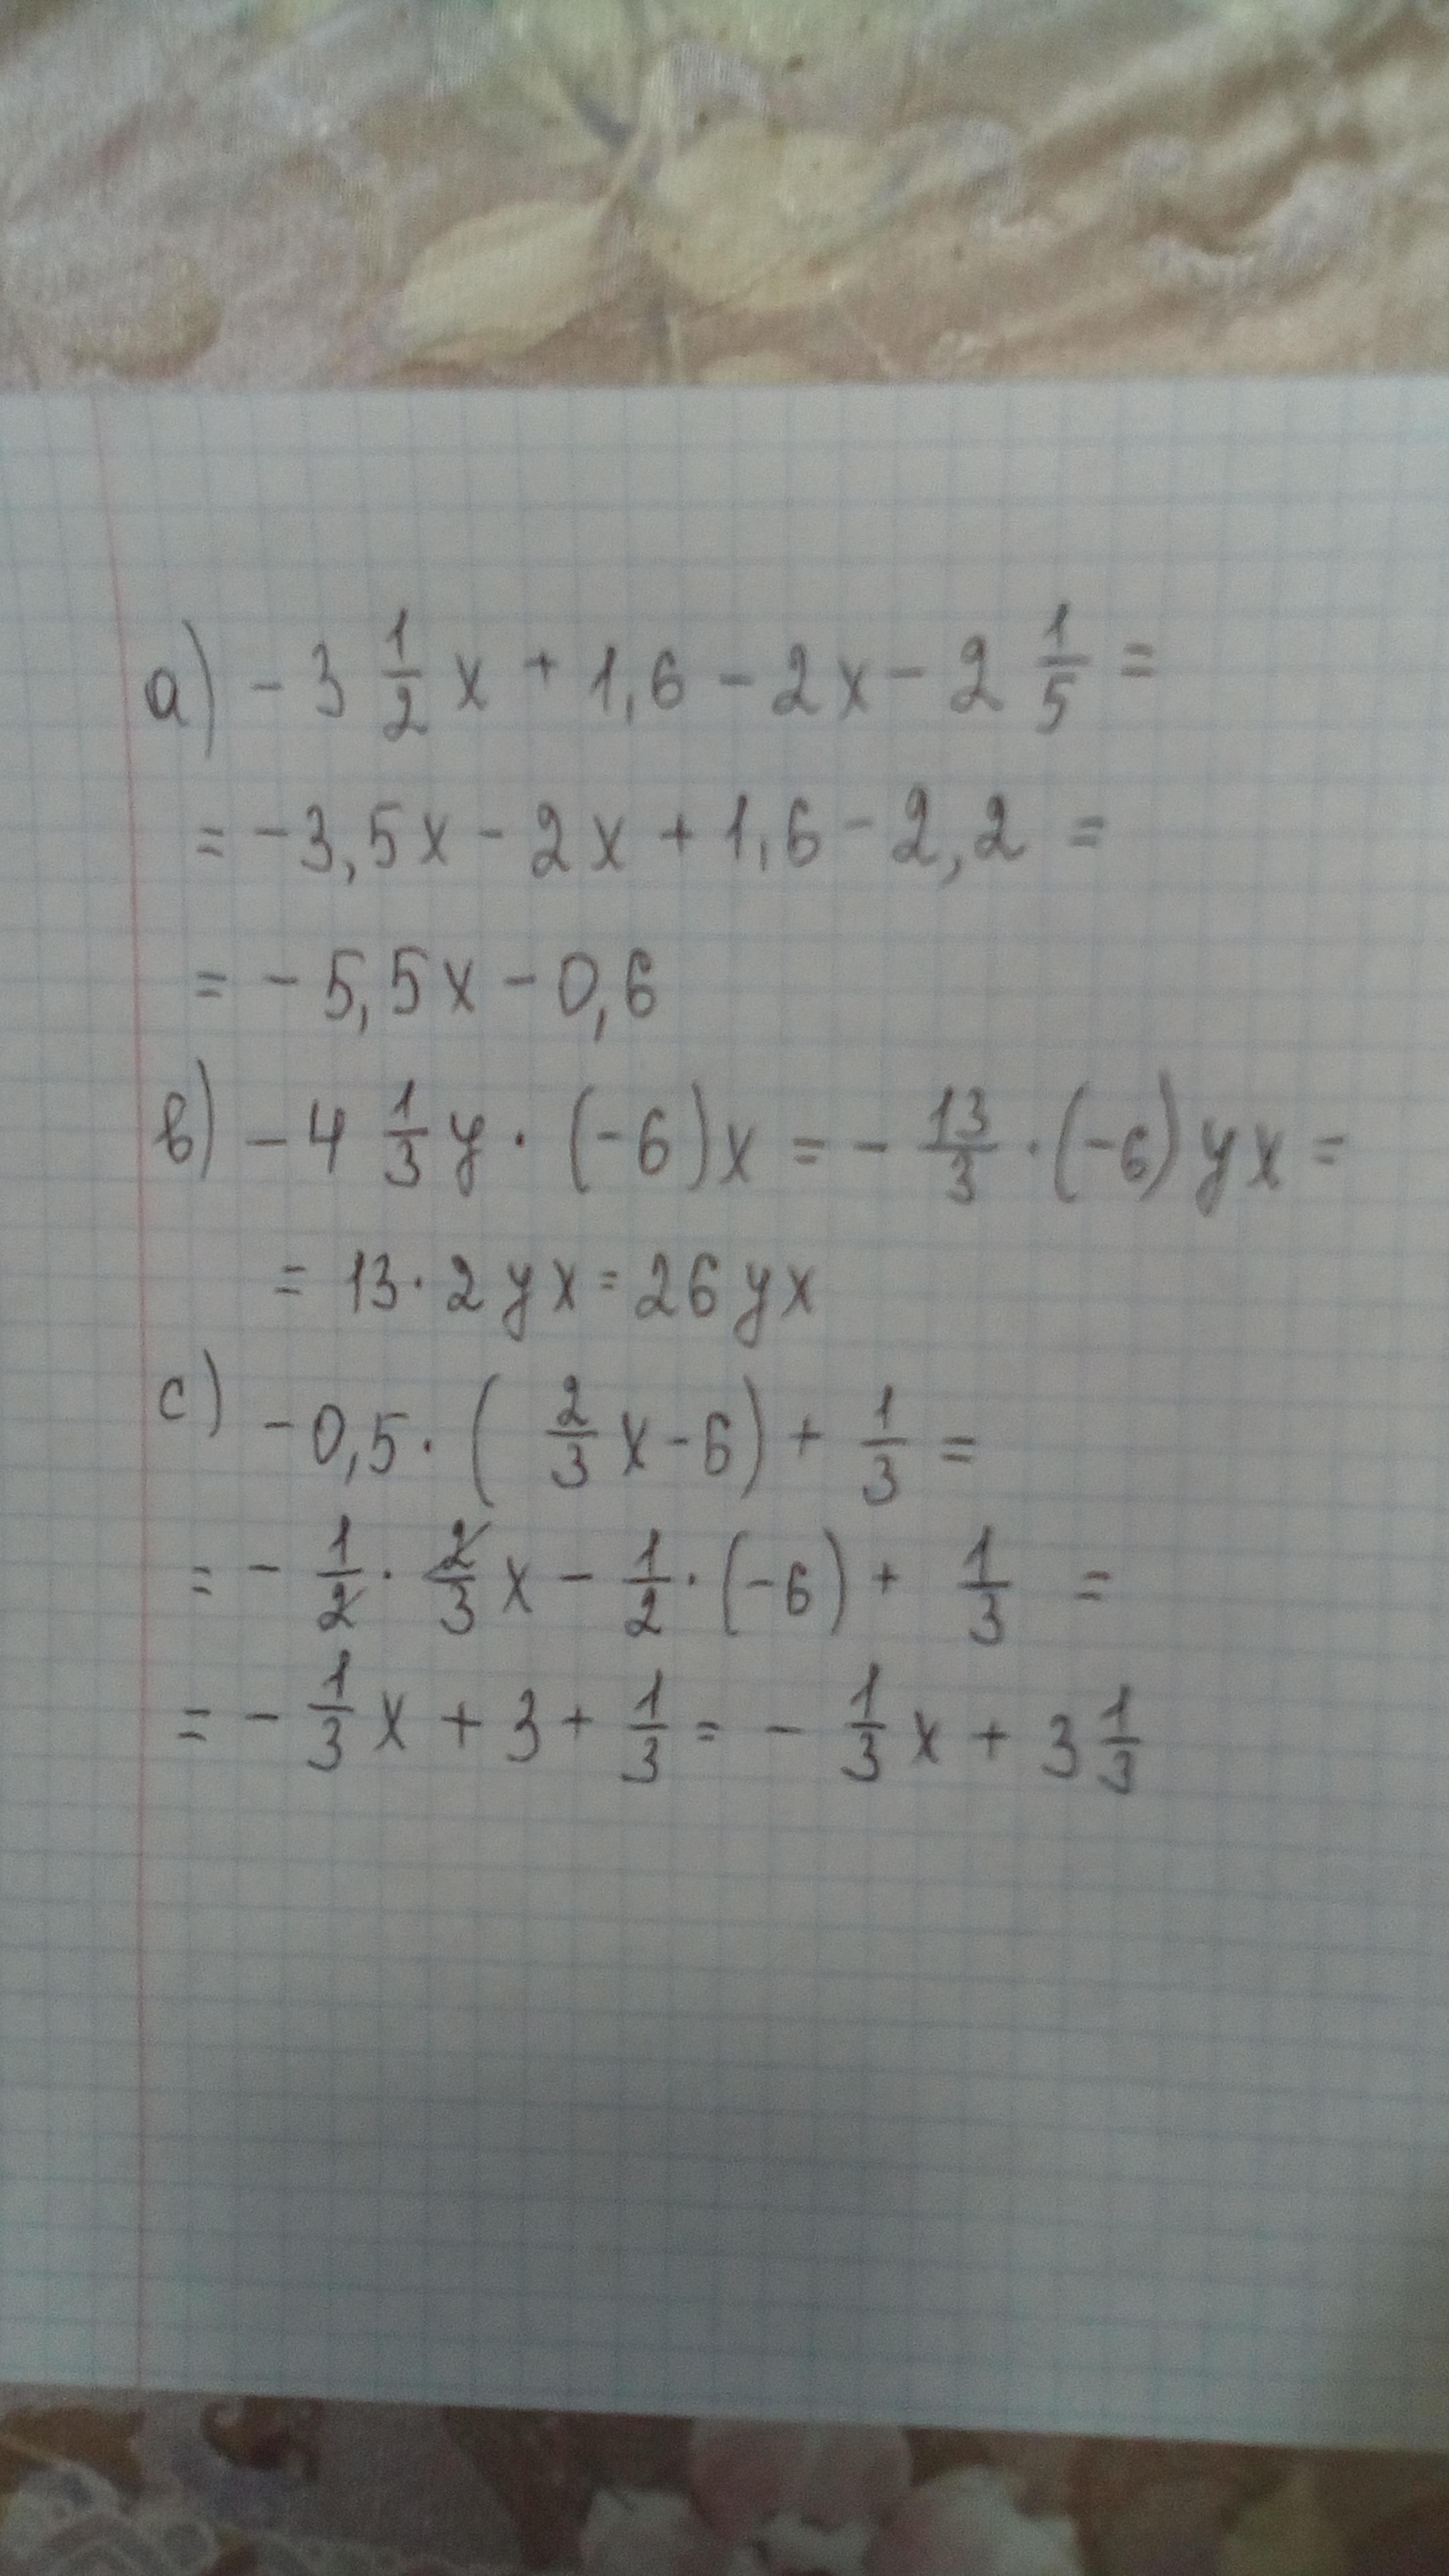 а) - 3 1/2 x + 1,6 - 2x - 2 1/5 =
= -3,5x - 2x + 1,6 - 2,2 =
= - 5,5x - 0,6
в) - 4 1/3 y · (-6)x = - 13/3 · (-6) yx =
= 13 · 2 yx = 26 yx
с) - 0,5 · ( 2/3 x - 6) + 1/3 =
= - 1/2 · 2/3 x - 1/2 · (-6) + 1/3 =
= - 1/3 x + 3 + 1/3 = - 1/3 x + 3 1/3